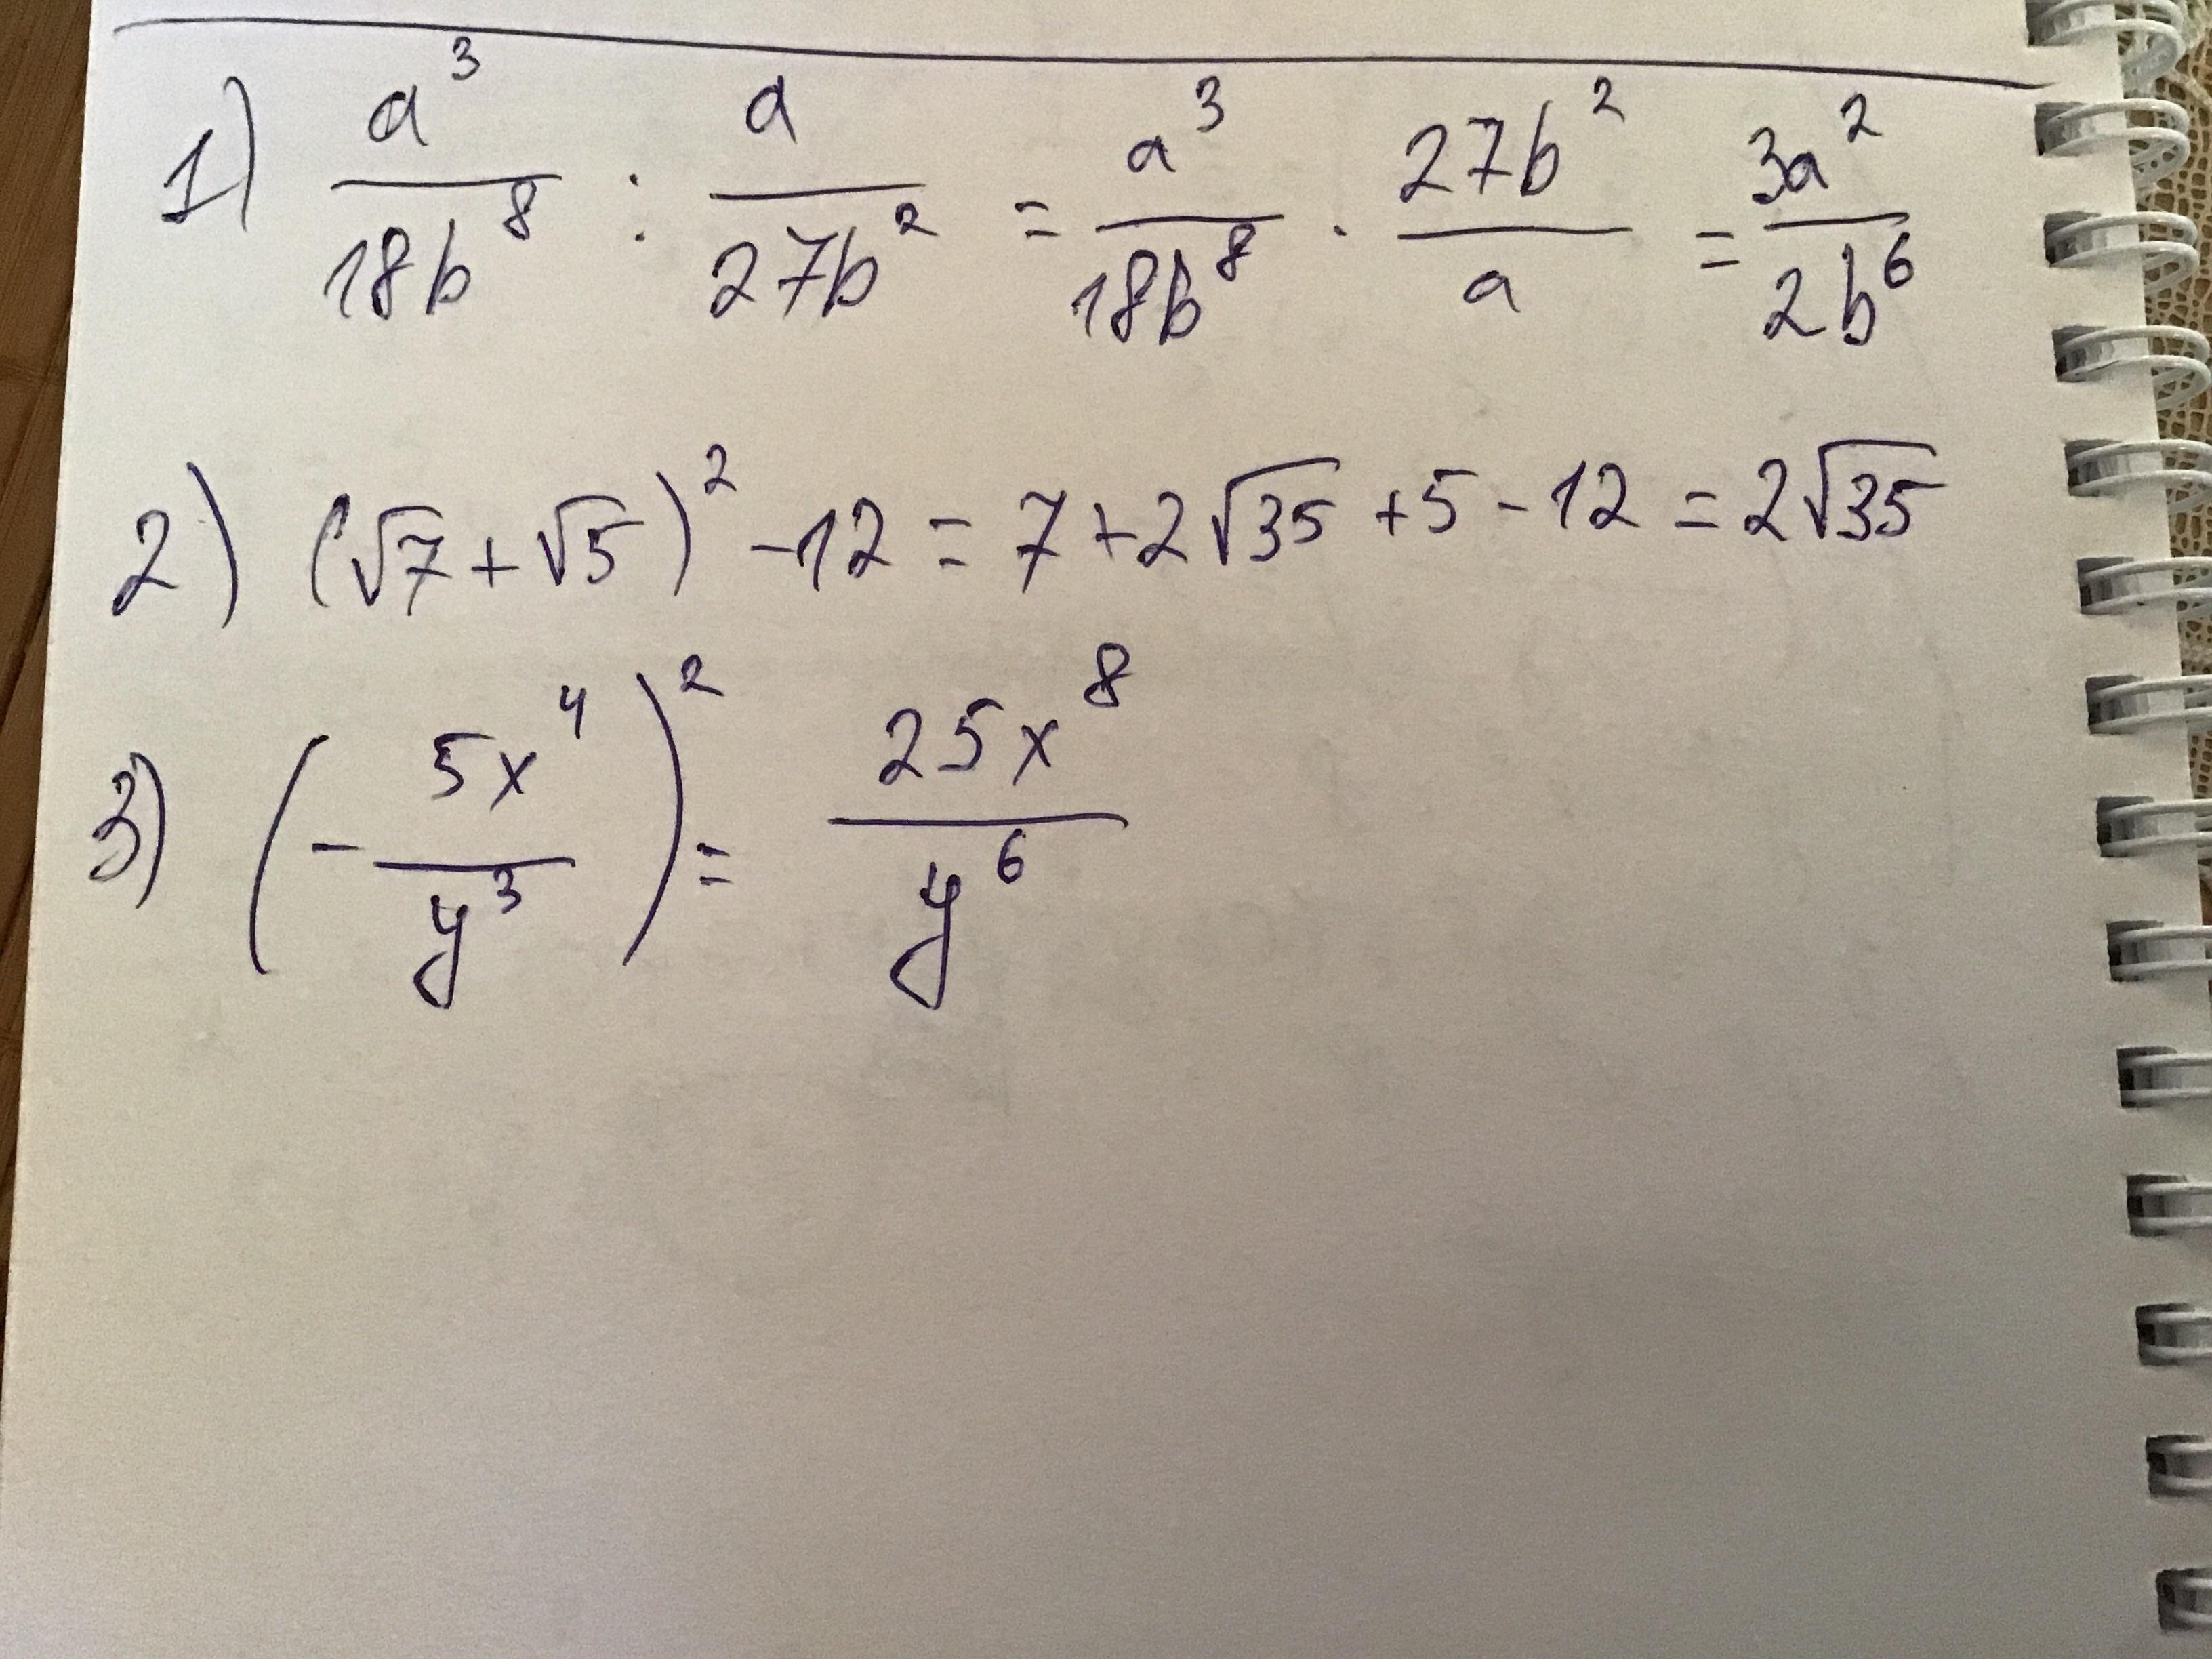 1) a³/18b⁸ : a/27b² = a³/18b⁸ · 27b²/a = 3a²/2b⁶
2) (√7+√5)² -12 = 7+2√35 +5-12 = 2√35
3) (- 5x⁴/y³)² = 25x⁸/y⁶